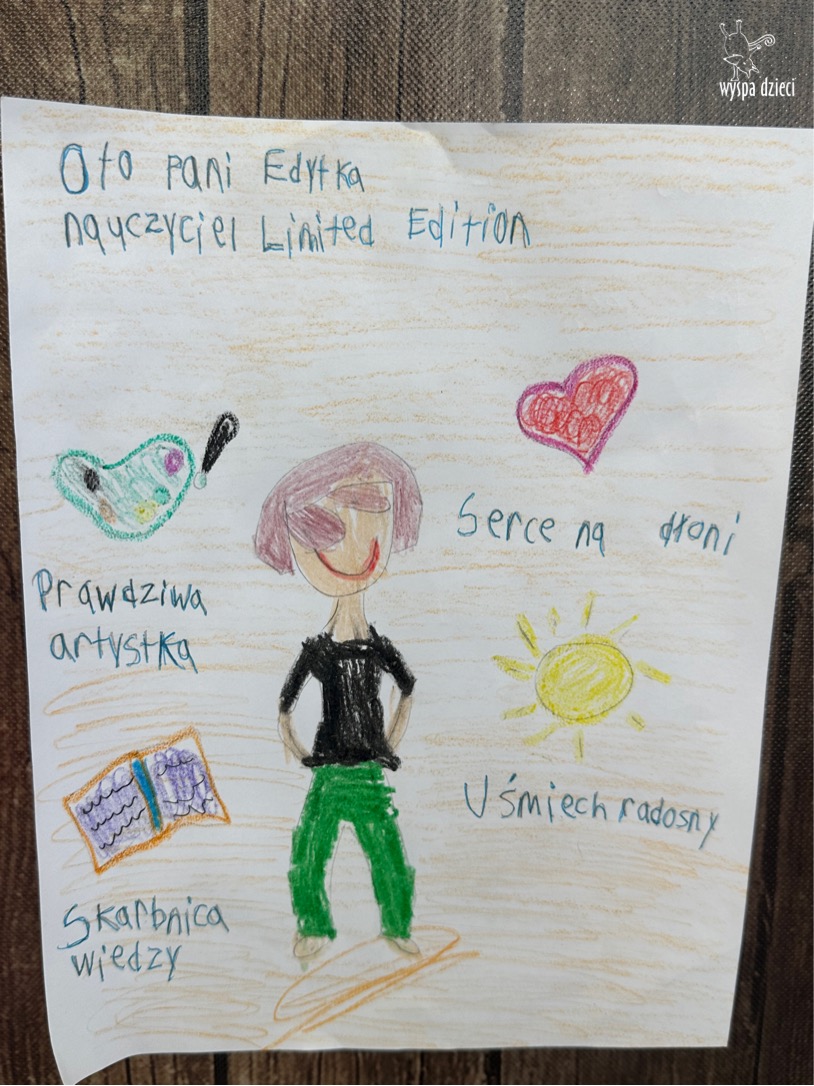 wyspa dzieci
Oto pani Edytka
nauczyciel Limited Edition
Serce na dłoni
Prawdziwa
artystka
Uśmiech radosny
Skarbnica
wiedzy